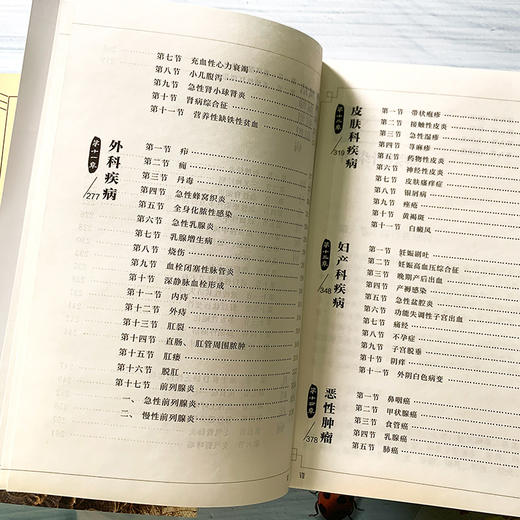 第七节 充血性心力衰竭
第八节 小儿腹泻
第九节 急性肾小球肾炎
第十节 肾病综合征
第十一节 营养性缺铁性贫血
第十一章
外科疾病
/277
第一节 疖
第二节 痈
第三节 丹毒
第四节 急性蜂窝织炎
第五节 全身化脓性感染
第六节 急性乳腺炎
第七节 乳腺增生病
第八节 烧伤
第九节 血栓闭塞性脉管炎
第十节 深静脉血栓形成
第十一节 内痔
第十二节 外痔
第十三节 肛裂
第十四节 直肠、肛管周围脓肿
第十五节 肛瘘
第十六节 脱肛
第十七节 前列腺炎
一、急性前列腺炎
二、慢性前列腺炎
第十二章
皮肤科疾病
/319
第一节 带状疱疹
第二节 接触性皮炎
第三节 急性湿疹
第四节 荨麻疹
第五节 药物性皮炎
第六节 神经性皮炎
第七节 皮肤瘙痒症
第八节 银屑病
第九节 痤疮
第十节 黄褐斑
第十一节 白癜风
第十三章
妇产科疾病
/348
第一节 妊娠剧吐
第二节 妊娠高血压综合征
第三节 晚期产后出血
第四节 产褥感染
第五节 急性盆腔炎
第六节 功能失调性子宫出血
第七节 痛经
第八节 不孕症
第九节 子宫脱垂
第十节 阴痒
第十一节 外阴白色病变
第十四章
恶性肿瘤
/378
第一节 鼻咽癌
第二节 甲状腺癌
第三节 食管癌
第四节 乳腺癌
第五节 肺癌
VII